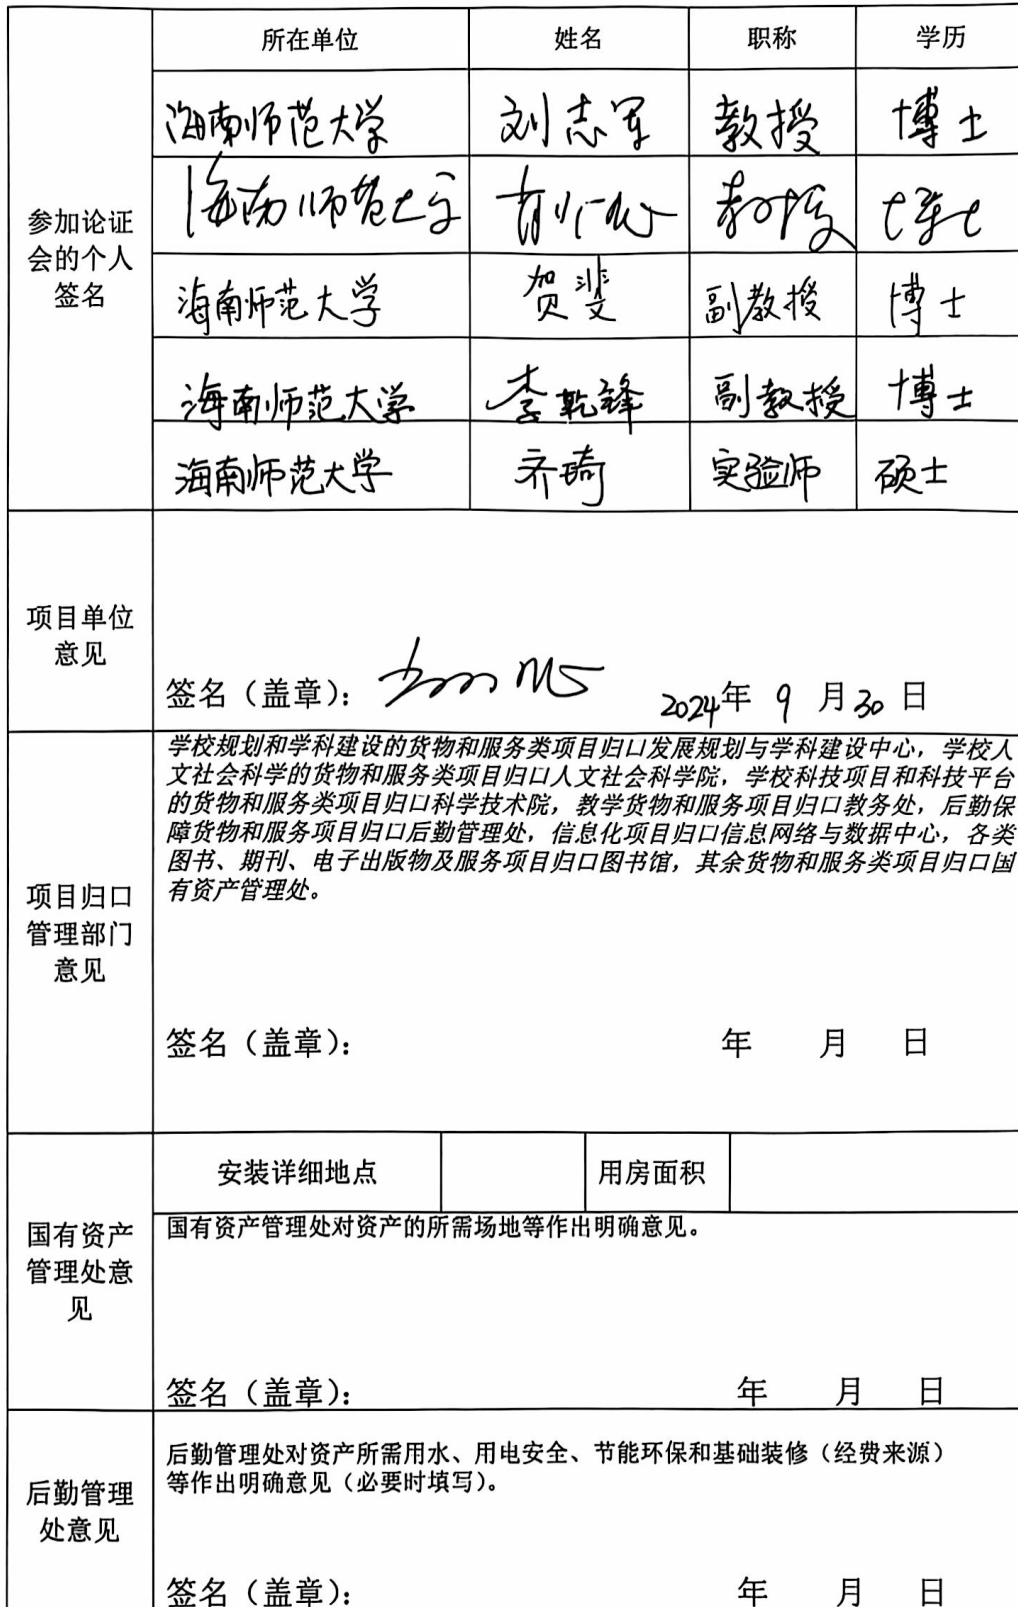 所在单位 姓名 职称 学历
参加论证
会的个人
签名
海南师范大学 刘志军 教授 博士
海南师范大学 教授 博士
海南师范大学 贺斐 副教授 博士
海南师范大学 李乾锋 副教授 博士
海南师范大学 齐琦 实验师 硕士
项目单位
意见
签名（盖章）： 2024年 9 月 30 日
项目归口
管理部门
意见
学校规划和学科建设的货物和服务类项目归口发展规划与学科建设中心，学校人
文社会科学的货物和服务类项目归口人文社会科学院，学校科技项目和科技平台
的货物和服务类项目归口科学技术院，教学货物和服务项目归口教务处，后勤保
障货物和服务项目归口后勤管理处，信息化项目归口信息网络与数据中心，各类
图书、期刊、电子出版物及服务项目归口图书馆，其余货物和服务类项目归口国
有资产管理处。
签名（盖章）： 年 月 日
国有资产
管理处意
见
安装详细地点 用房面积
国有资产管理处对资产的所需场地等作出明确意见。
签名（盖章）： 年 月 日
后勤管理
处意见
后勤管理处对资产所需用水、用电安全、节能环保和基础装修（经费来源）
等作出明确意见（必要时填写）。
签名（盖章）： 年 月 日